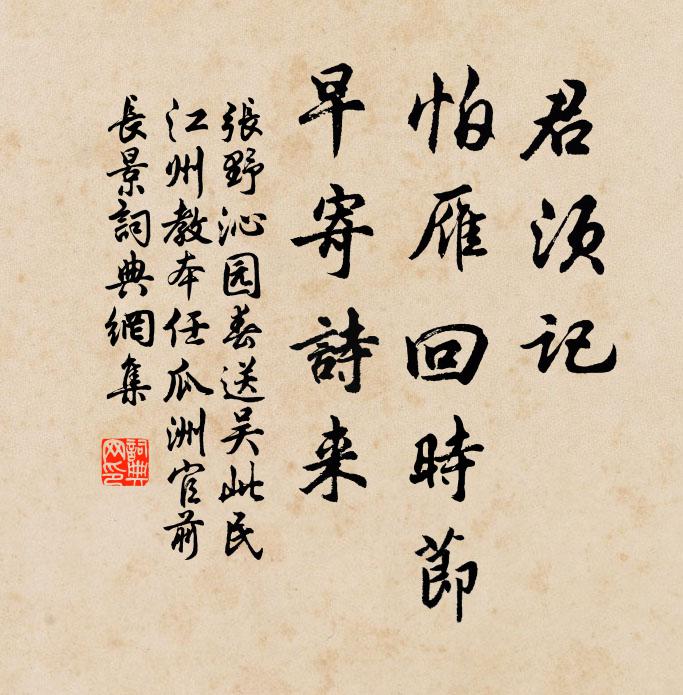 君須記
怕雁回時節
早寄詩来
張野沁园春送吴此民
江州教本任瓜洲官前
長景詞典網集
詞典网印